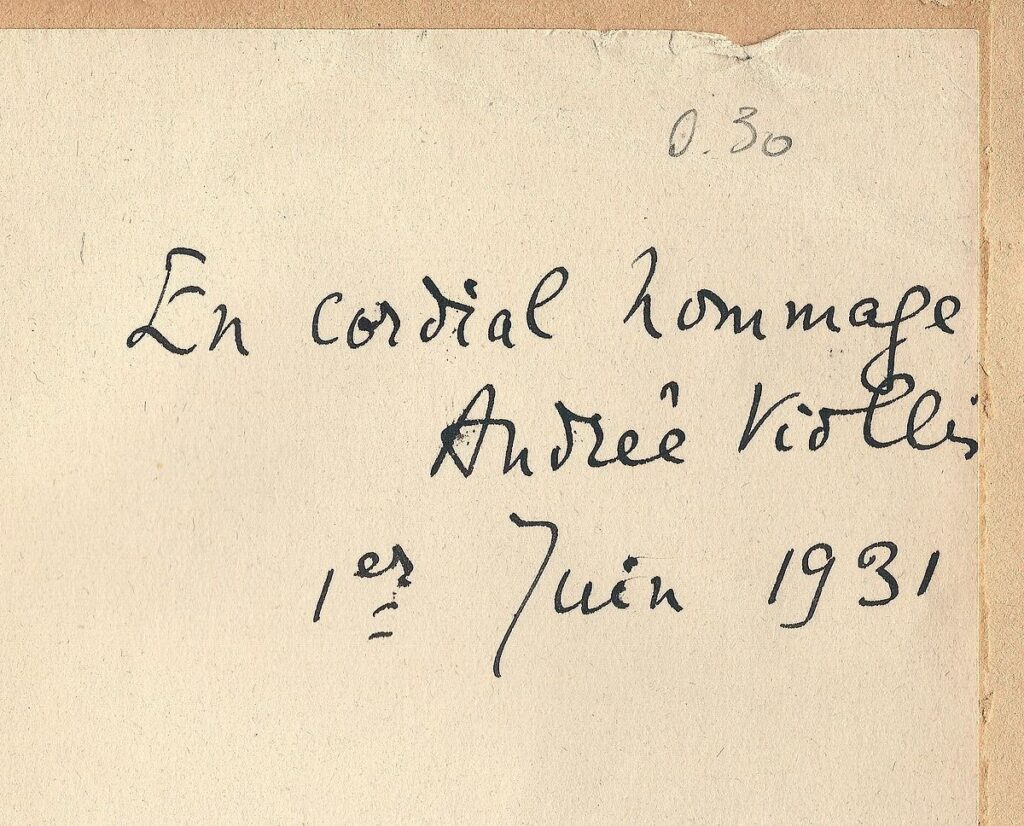 0.30
En cordial hommage
Andrée Viollis
1er Juin 1931